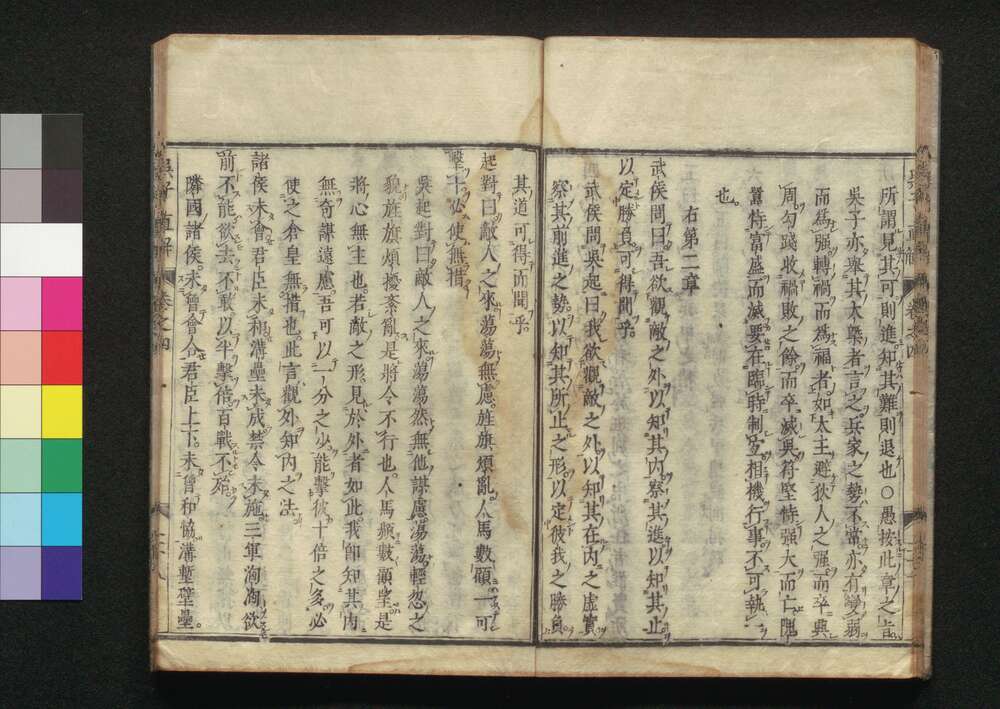 所謂見其可則進知其難則退也○愚按此章之旨
吳子亦舉其大槩者言之兵家之勢不常亦有變弱
而爲强轉禍而爲福者如太王避狄人之强而卒興
周勾踐收禍敗之餘而卒滅吳符堅恃强大而亡隗
囂恃富盛而滅要在臨時制宜相機行事不可執一
也
右第二章
武侯問曰吾欲觀敵之外以知其内察其進以知其止
以定勝負可得聞乎
武侯問吳起曰我欲觀敵之外以知其在内之虛實
察其前進之勢以知其所止之形以定彼我之勝負
其道可得而聞乎
起對曰敵人之來蕩蕩無慮旌旗煩亂人馬數顧一可
擊十必使無措
吳起對曰敵人之來蕩蕩然無他謀慮蕩蕩輕忽之
貌旌旗煩擾紊亂是將令不行也人馬頻數顧望是
將心無主也若敵之形見於外者如此我卽知其内
無奇謀遠慮吾可以一分之少能擊彼十倍之多必
使之倉皇無措也此言觀外知内之法
諸侯未會君臣未和溝壘未成禁令未施三軍洶洶欲
前不能欲去不敢以半擊倍百戰不殆
隣國諸侯未曾會合君臣上下未曾和協溝塹壁壘